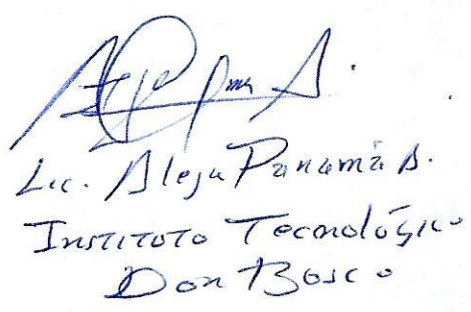 Lic. Aleja Panamá A.
Instituto Tecnológico
Don Bosco